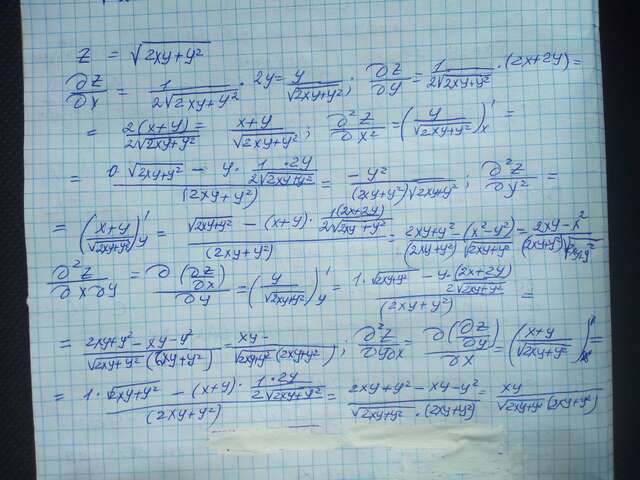 z = √(2xy+y²)
∂z/∂x = 1/(2√(2xy+y²)) · 2y = y/√(2xy+y²); ∂z/∂y = 1/(2√(2xy+y²)) · (2x+2y) =
= 2(x+y)/(2√(2xy+y²)) = (x+y)/√(2xy+y²); ∂²z/∂x² = (y/√(2xy+y²))'x =
= (0·√(2xy+y²) − y · (1·2y)/(2√(2xy+y²)))/(2xy+y²) = −y²/((2xy+y²)√(2xy+y²)); ∂²z/∂y² =
= ((x+y)/√(2xy+y²))'y = (√(2xy+y²) − (x+y) · 1(2x+2y)/(2√(2xy+y²)))/(2xy+y²) = (2xy+y² (x²−y²))/((2xy+y²)√(2xy+y²)) = (2xy−x²)/((2xy+y²)√(2xy+y²))
∂²z/∂x∂y = ∂(∂z/∂x)/∂y = (y/√(2xy+y²))'y = (1·√(2xy+y²) − y · (2x+2y)/(2√(2xy+y²)))/(2xy+y²) =
= (2xy+y²−xy−y²)/(√(2xy+y²)(2xy+y²)) = xy/(√(2xy+y²)(2xy+y²)); ∂²z/∂y∂x = ∂(∂z/∂y)/∂x = ((x+y)/√(2xy+y²))'x =
= (1·√(2xy+y²) − (x+y) · (1·2y)/(2√(2xy+y²)))/(2xy+y²) = (2xy+y²−xy−y²)/(√(2xy+y²)·(2xy+y²)) = xy/(√(2xy+y²)(2xy+y²))